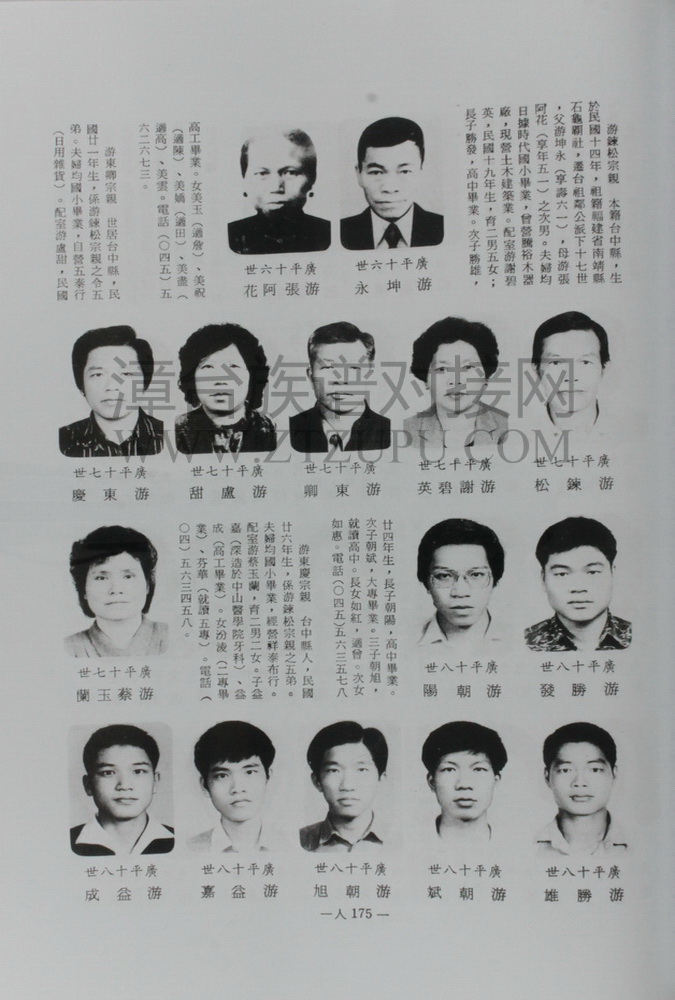 游鍊松宗親　本籍台中縣，生
於民國十四年，祖籍福建省南靖縣
石龜廟社，遷台祖鄰公派下十七世
，父游坤永（享壽六一），母游張
阿花（享年五一）之次男。夫婦均
日據時代國小畢業，曾營騰裕木器
廠，現營土木建築業。配室游謝碧
英，民國十九年生，育二男五女；
長子勝發，高中畢業。次子勝雄，
廣平十六世
游坤永
廣平十六世
游張阿花
高工畢業。女美玉（適詹）、美祝
（適陳）、美嬌（適田）、美盡（
適高）、美雲。電話（〇四五）五
六二六七三。
游東卿宗親　世居台中縣，民
國廿一年生，係游鍊松宗親之令五
弟。夫婦均國小畢業，自營五泰行
（日用雜貨）。配室游盧甜，民國
廣平十七世
游鍊松
廣平十七世
游謝碧英
廣平十七世
游東卿
廣平十七世
游盧甜
廣平十七世
游東慶
漳台族谱对接网
WWW.ZTZUPU.COM
廣平十八世
游勝發
廣平十八世
游朝陽
廿四年生，長子朝陽，高中畢業。
次子朝斌，大專畢業。三子朝旭，
就讀高中。長女如紅，適曾。次女
如惠。電話（〇四五）五六三五七八
游東慶宗親　台中縣人，民國
廿六年生，係游鍊松宗親之五弟。
夫婦均國小畢業，經營祥泰布行。
配室游蔡玉蘭，育二男二女。子益
嘉（深造於中山醫學院牙科）、益
成（高工畢業）。女汾淩（二專畢
業）、芬華（就讀五專）。電話（
〇四）五六三四五八。
廣平十七世
游蔡玉蘭
廣平十八世
游勝雄
廣平十八世
游朝斌
廣平十八世
游朝旭
廣平十八世
游益嘉
廣平十八世
游益成
—人175—